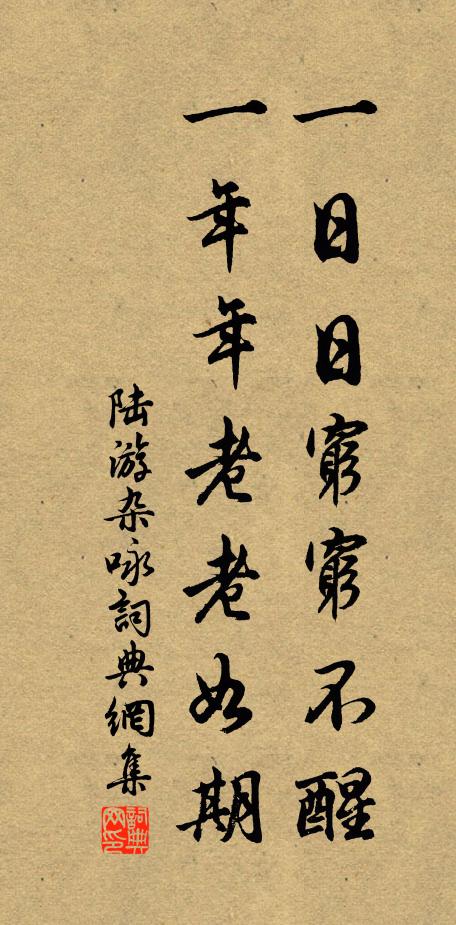 一日日窮窮不醒
一年年老老如期
陆游杂咏詞典網集
詞典网印